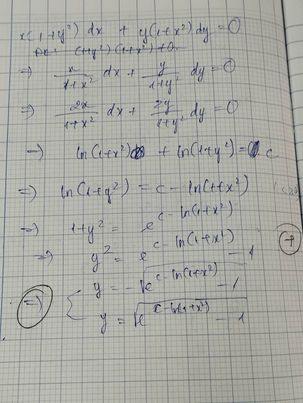 x(1+y²) dx + y(1+x²) dy = 0
(1+y²)(1+x²) ≠ 0
⇒ x/(1+x²) dx + y/(1+y²) dy = 0
⇒ 2x/(1+x²) dx + 2y/(1+y²) dy = 0
⇒ ln(1+x²) + ln(1+y²) = c
⇒ ln(1+y²) = c - ln(1+x²)
⇒ 1+y² = e^(c - ln(1+x²))
⇒ y² = e^(c - ln(1+x²)) - 1
⇒ { y = -√(e^(c - ln(1+x²)) - 1)
y = √(e^(c - ln(1+x²)) - 1)